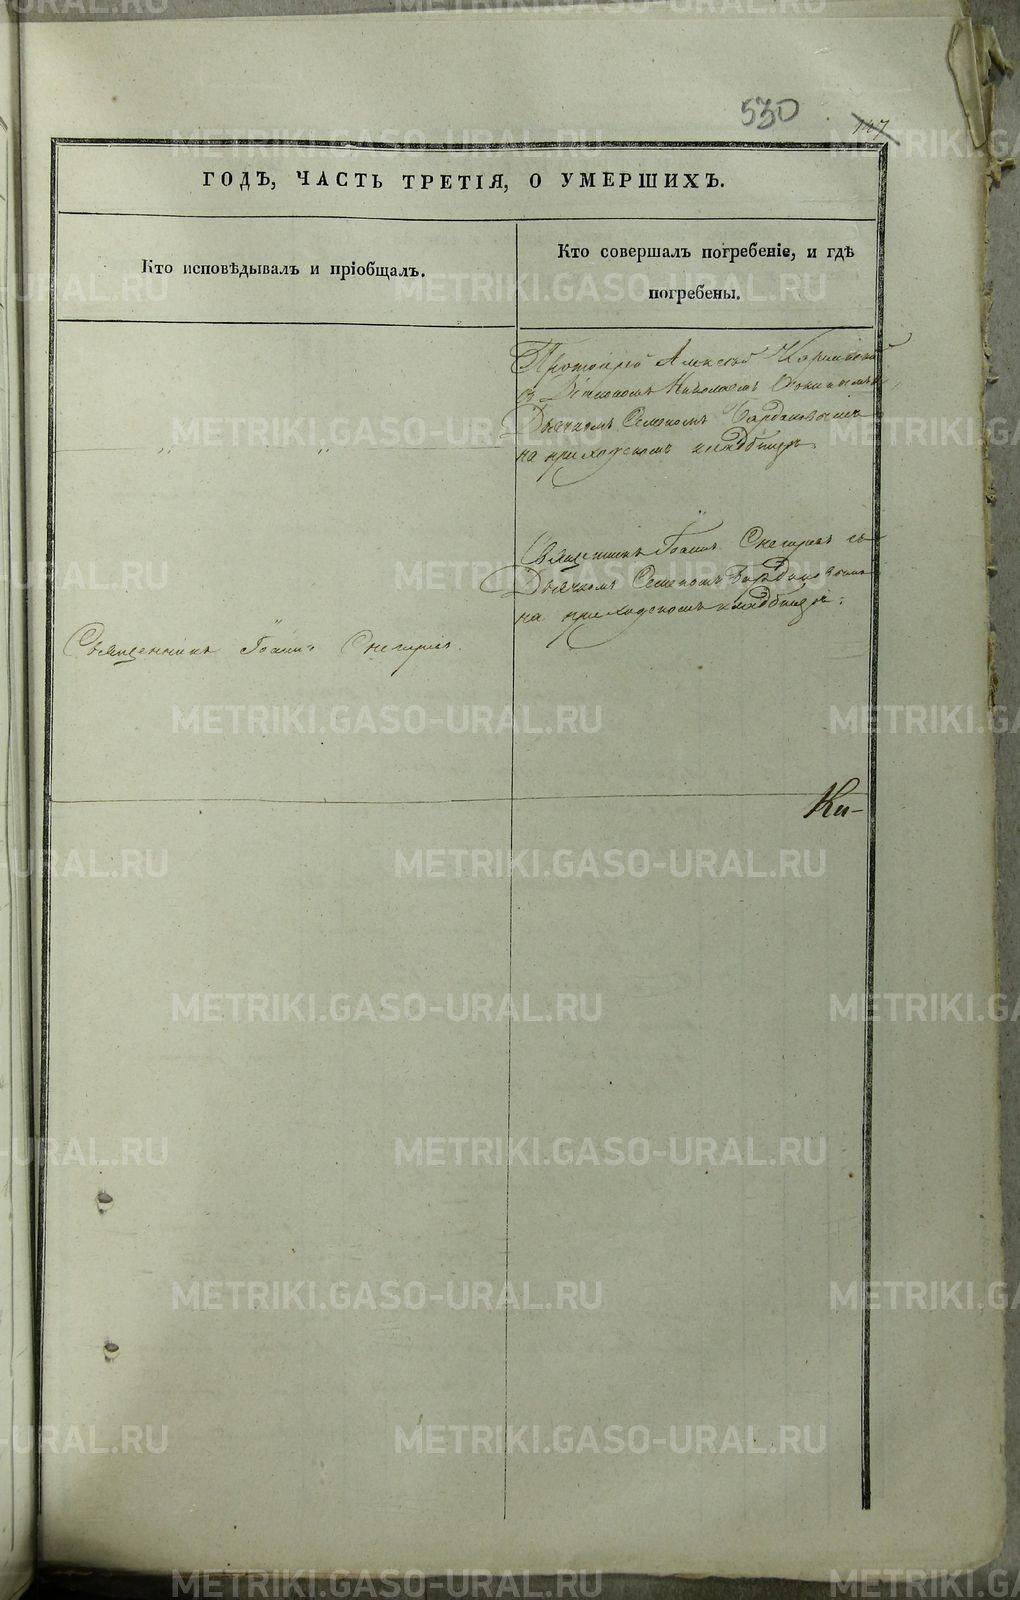 530
147
ГОДЪ, ЧАСТЬ ТРЕТІЯ, О УМЕРШИХЪ.
Кто исповѣдывалъ и пріобщалъ.
Кто совершалъ погребеніе, и гдѣ
погребены.
Протоіерей Алексѣй
съ Діакономъ Николаемъ
Дьячкомъ Семеномъ
на приходскомъ кладбищѣ
Священникъ Іоаннъ Снегиревъ съ
Дьячкомъ Семеномъ
на приходскомъ кладбищѣ.
Священникъ Іоаннъ Снегиревъ.
Ки-
METRIKI.GASO-URAL.RU